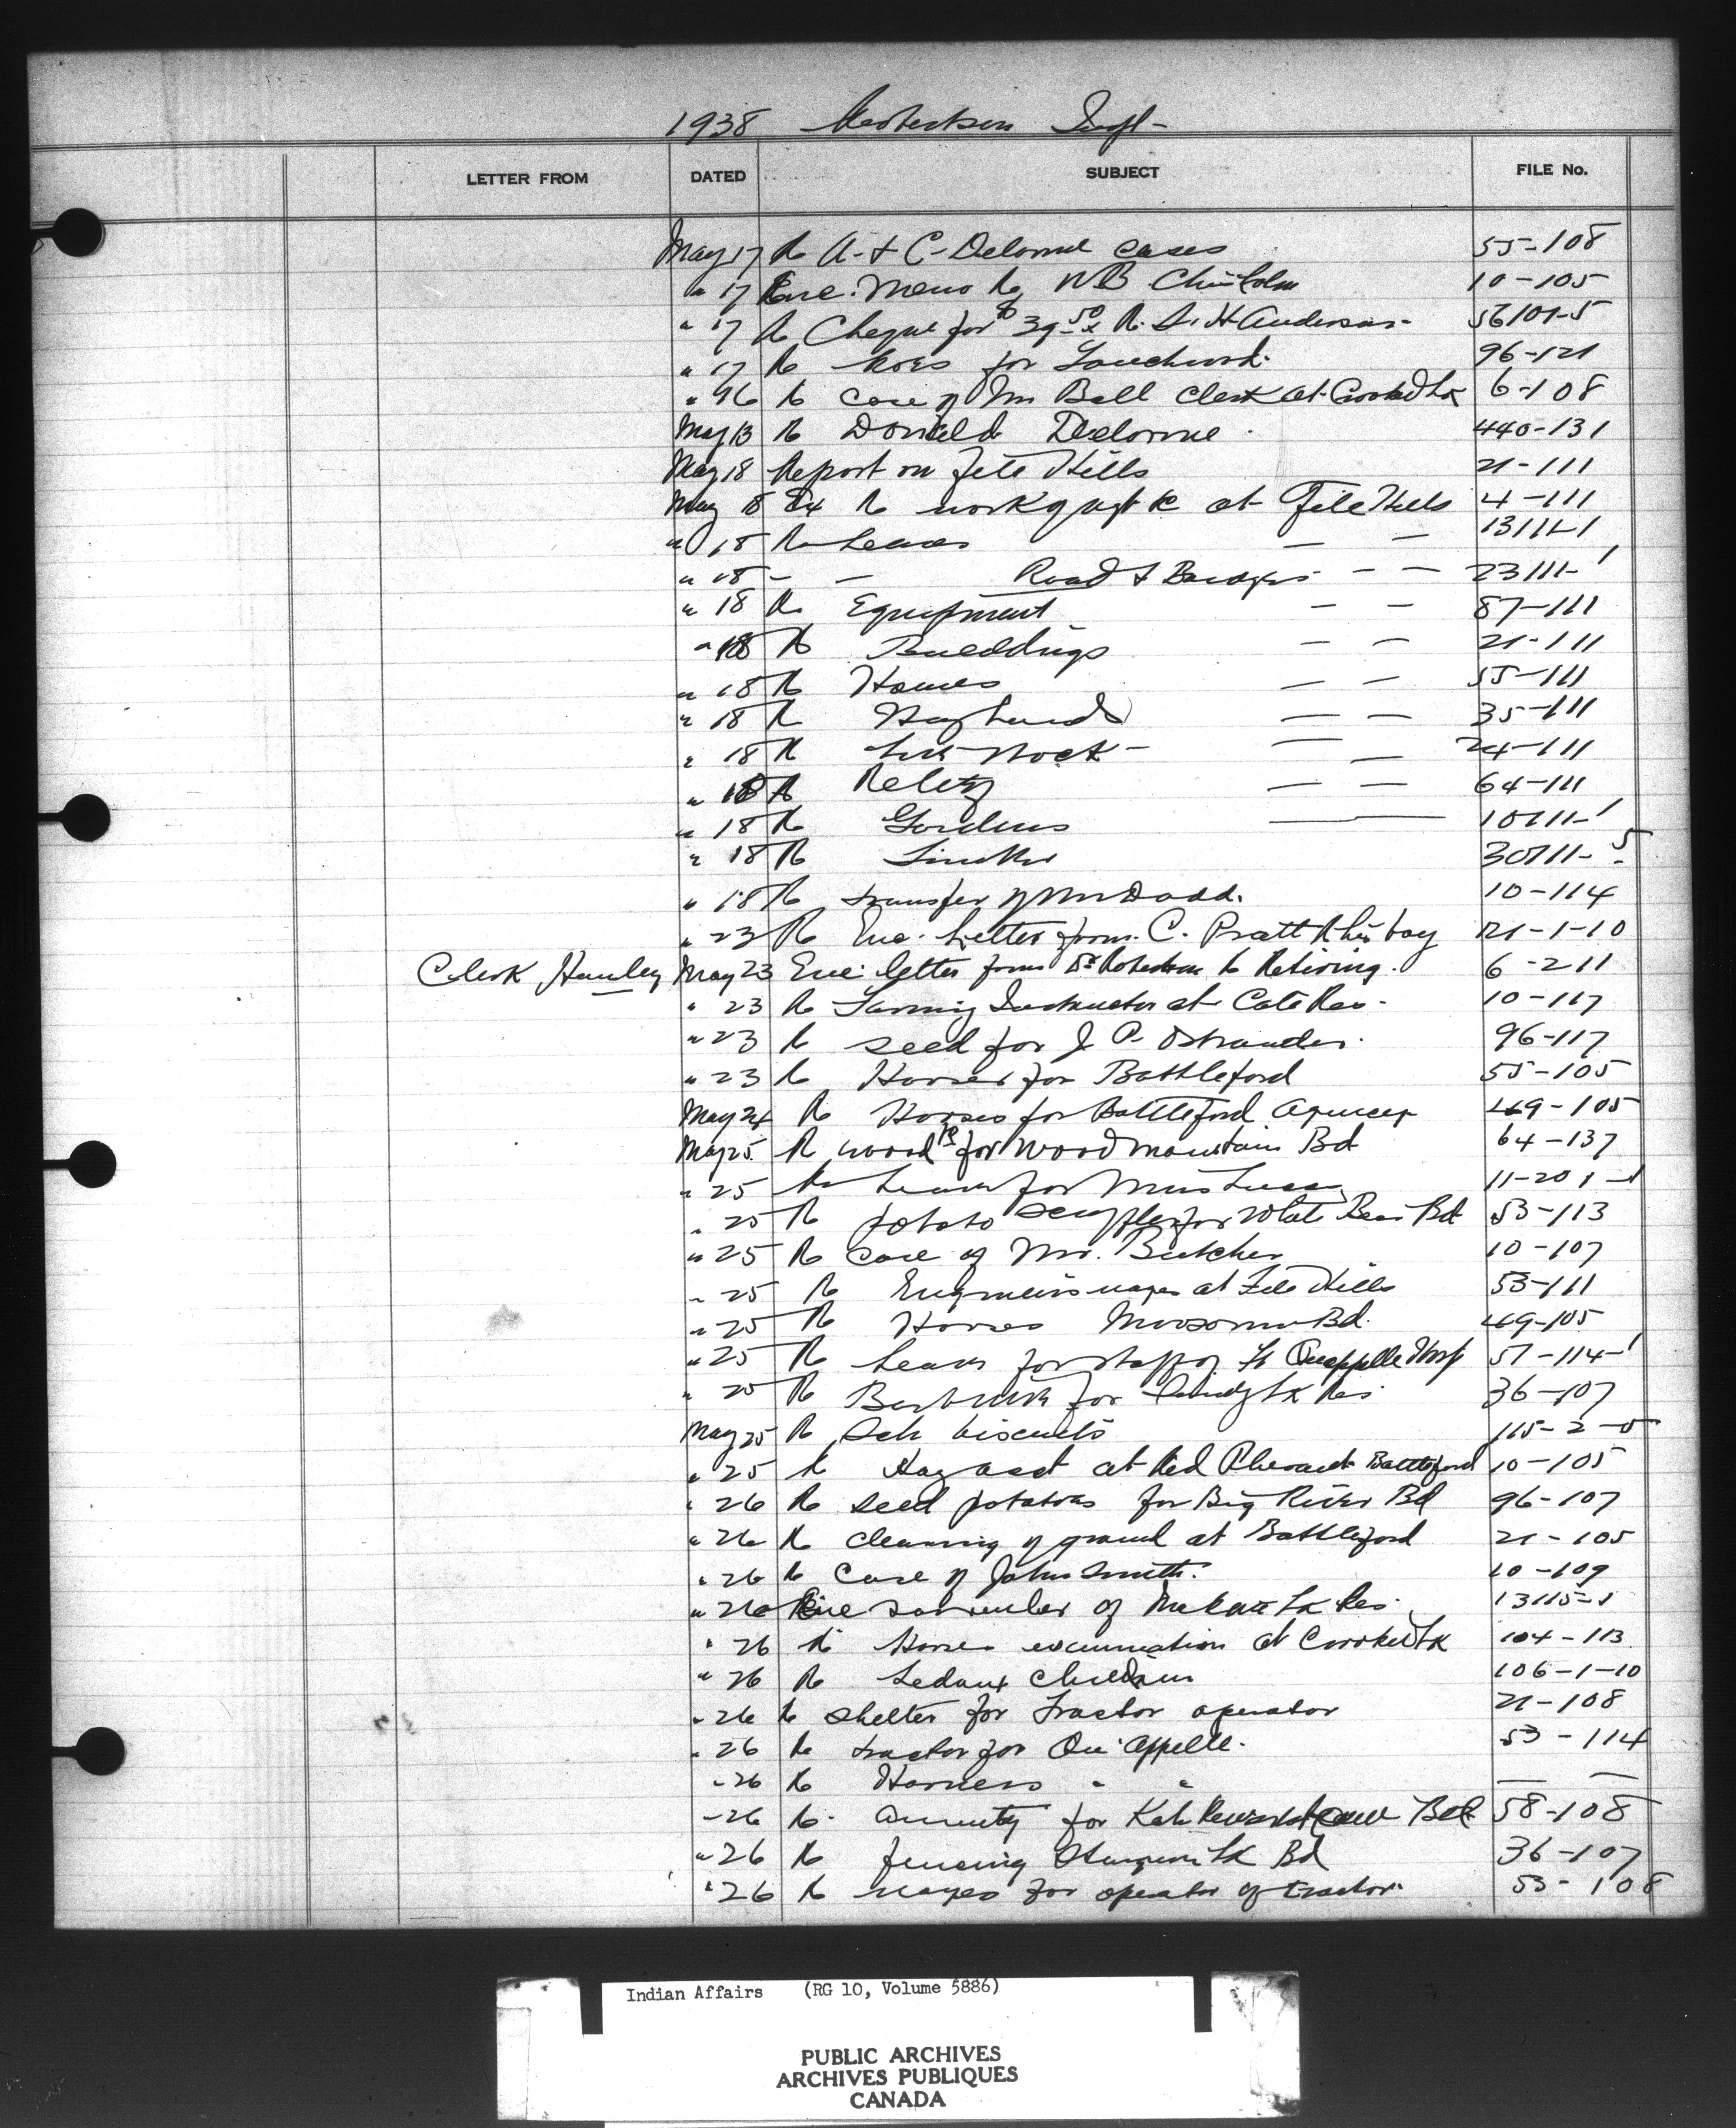 1938 Robertson Insp-
LETTER FROM DATED SUBJECT FILE No.
May 17 Re A. & C. Delorme cases 55-108
" 17 Enc. Memo Re W B Chisholm 10-105
" 17 Re Cheque for $39.50 Re. Anderson 56101-5
" 17 Re for Touchwood. 96-121
" 96 Re case of Mr Ball Clerk at Crooked Lk 6-108
May 13 Re Donald Delorme 440-131
May 18 Report on File Hills 21-111
May 18 Re work at File Hills 4-111
" 18 Re Leases — — 13111-1
" 18 - - Road & Bridges — — 23111-1
" 18 Re Equipment — — 87-111
" 18 Re Buildings — — 21-111
" 18 Re Homes — — 55-111
" 18 Re Hay Lands — — 35-111
" 18 Re Live Stock — — 24-111
" 18 Re Relief — — 64-111
" 18 Re Gardens — 10111-1
" 18 Re Timber 30111-5
" 18 Re transfer of Mr Dodd. 10-114
" 23 Re Enc. Letter from C. Pratt R his boy 121-1-10
Clerk Hanley May 23 Enc. letter from Dr Robertson Re Retiring. 6-211
" 23 Re Farming Instructor at Cote Res. 10-117
" 23 Re seed for J. P. Ostrander. 96-117
" 23 Re Horses for Battleford 55-105
May 24 Re Horses for Battleford Agency 49-105
May 25 Re wood for Wood Mountain Bd 64-137
" 25 Re Leave for Miss 11-201-1
" 25 Re potato scuffler for White Bear Bd 53-113
" 25 Re case of Mr. Butcher 10-107
" 25 Re Engineers wages at File Hills 53-111
" 25 Re Horses Moosomin Bd. 49-105
" 25 Re Leave for staff of Ft Quappelle Hosp 57-114-1
" 25 Re Barb wire for Sandy Lk Res. 36-107
May 25 Re Sch biscuits 115-2-5
" 25 Re at Red Pheasant Battleford 10-105
" 26 Re seed potatoes for Big River Bd 96-107
" 26 Re cleaning of ground at Battleford 21-105
" 26 Re Case of John Smith. 10-109
" 26 Re surrender of Lk Res. 13115-1
" 26 Re Horse at Crooked Lk 104-113
" 26 Re Ledoux Children 106-1-10
" 26 Re shelter for Tractor operator 21-108
" 26 Re tractor for Qu'appelle. 53-114
" 26 Re Harness " " — —
" 26 Re annuity for Bd 58-108
" 26 Re fencing Lk Bd 36-107
" 26 Re wages for operator of tractor. 53-108
Indian Affairs (RG 10, Volume 5886)
PUBLIC ARCHIVES
ARCHIVES PUBLIQUES
CANADA